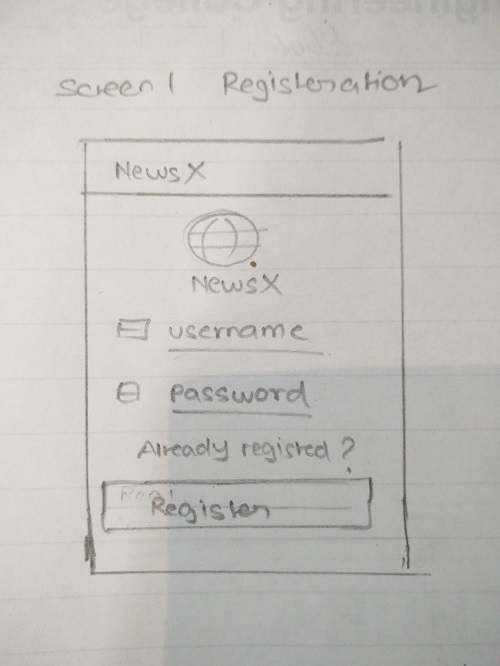 Screen 1 Registeration
NewsX
NewsX
username
password
Already registed?
Register